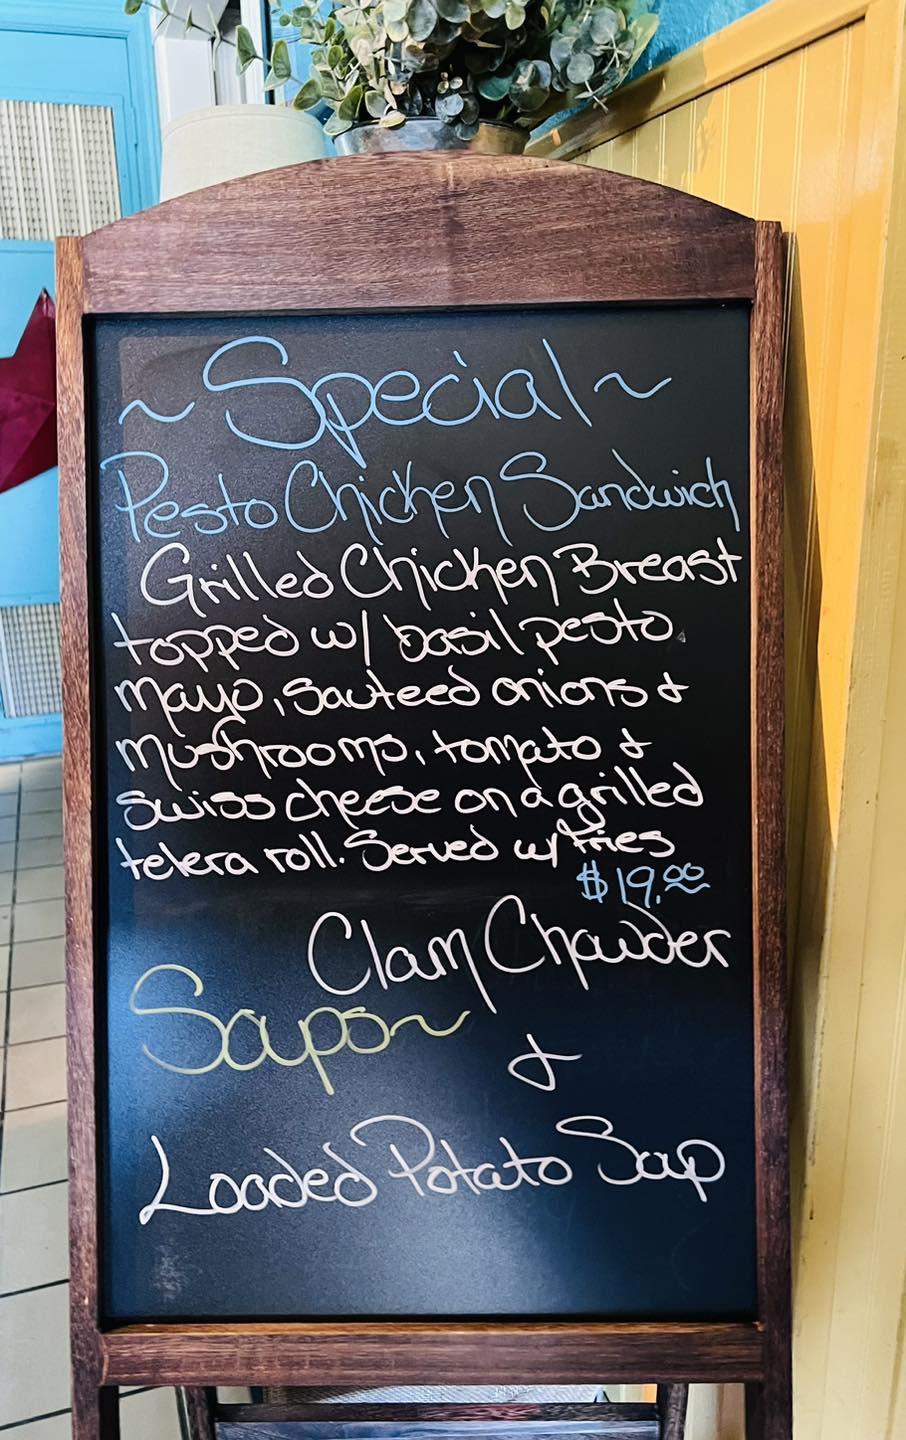 ~ Special ~
Pesto Chicken Sandwich
Grilled Chicken Breast
topped w/ basil pesto
mayo, sauteed onions &
mushrooms, tomato &
swiss cheese on a grilled
telera roll. Served w/ fries
$19.00
Clam Chowder
Soups~
&
Loaded Potato Soup